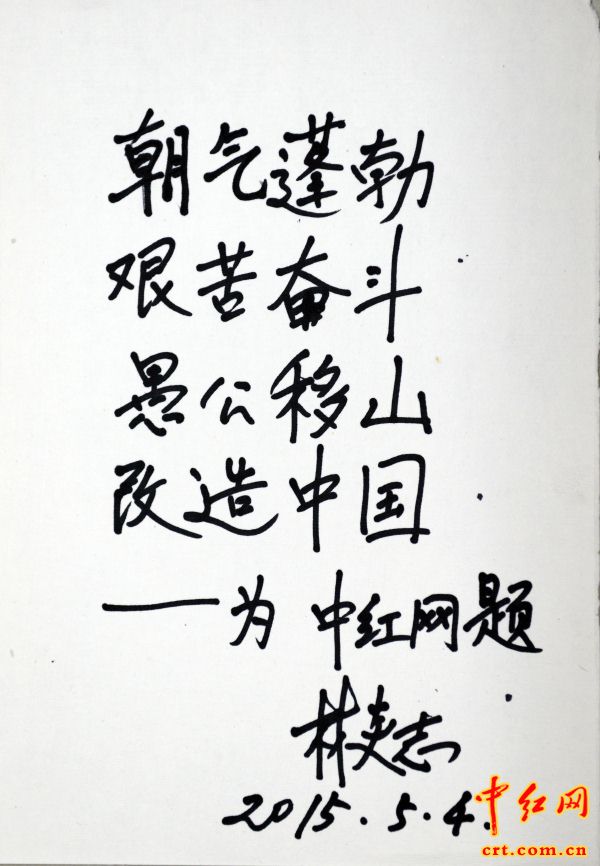 朝气蓬勃
艰苦奋斗
愚公移山
改造中国
——为中红网题
林炎志
2015.5.4.
中红网
crt.com.cn